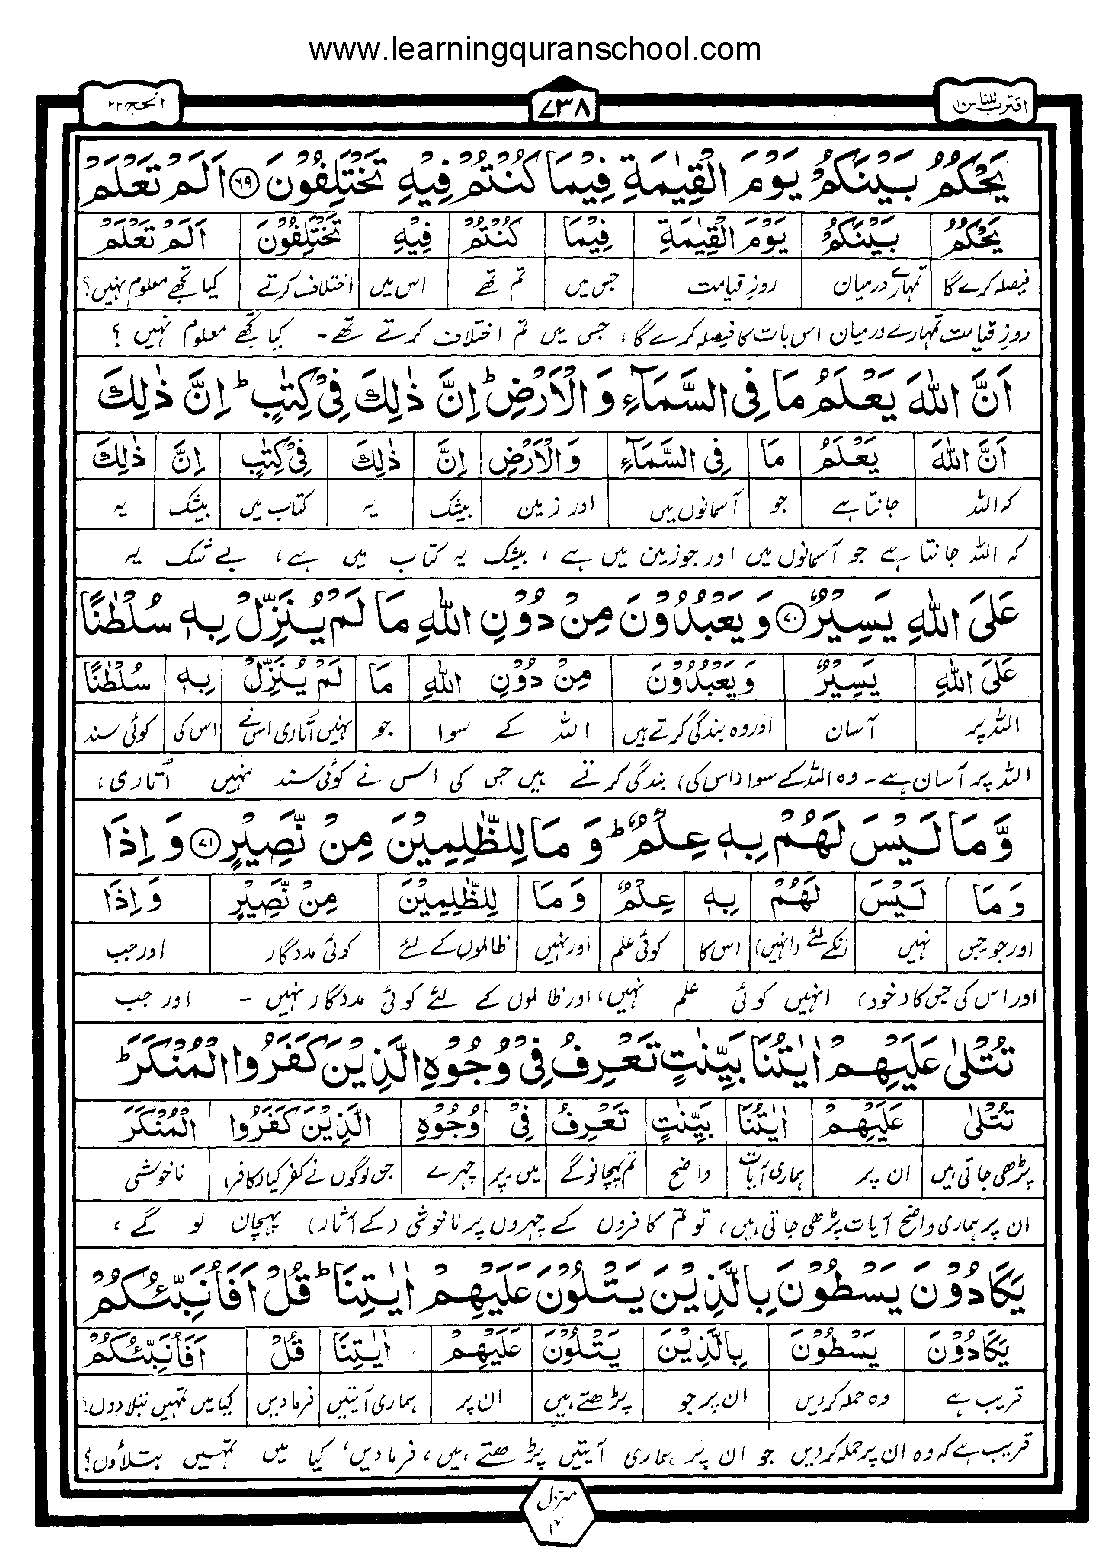 www.learningquranschool.com
اقترب للناس ۱۷
۷۳۸
الحج ۲۲
يَحْكُمُ بَيْنَكُمْ يَوْمَ الْقِيٰمَةِ فِيْمَا كُنْتُمْ فِيْهِ تَخْتَلِفُوْنَ ۶۹ اَلَمْ تَعْلَمْ
يَحْكُمُ بَيْنَكُمْ يَوْمَ الْقِيٰمَةِ فِيْمَا كُنْتُمْ فِيْهِ تَخْتَلِفُوْنَ اَلَمْ تَعْلَمْ
فیصلہ کرے گا تمہارے درمیان روزِ قیامت جس میں تم تھے اس میں اختلاف کرتے کیا تجھے معلوم نہیں؟
روزِ قیامت تمہارے درمیان اس بات کا فیصلہ کرے گا، جس میں تم اختلاف کرتے تھے۔ کیا تجھے معلوم نہیں ؟
اَنَّ اللّٰهَ يَعْلَمُ مَا فِي السَّمَآءِ وَالْاَرْضِ ؕ اِنَّ ذٰلِكَ فِيْ كِتٰبٍ ؕ اِنَّ ذٰلِكَ
اَنَّ اللّٰهَ يَعْلَمُ مَا فِي السَّمَآءِ وَالْاَرْضِ اِنَّ ذٰلِكَ فِيْ كِتٰبٍ اِنَّ ذٰلِكَ
کہ اللہ جانتا ہے جو آسمانوں میں اور زمین بیشک یہ کتاب میں بیشک یہ
کہ اللہ جانتا ہے جو آسمانوں میں اور جو زمین میں ہے ، بیشک یہ کتاب میں ہے، بے شک یہ
عَلَى اللّٰهِ يَسِيْرٌ ۷۰ وَيَعْبُدُوْنَ مِنْ دُوْنِ اللّٰهِ مَا لَمْ يُنَزِّلْ بِهٖ سُلْطٰنًا
عَلَى اللّٰهِ يَسِيْرٌ وَيَعْبُدُوْنَ مِنْ دُوْنِ اللّٰهِ مَا لَمْ يُنَزِّلْ بِهٖ سُلْطٰنًا
اللہ پر آسان اور وہ بندگی کرتے ہیں اللہ کے سوا جو نہیں اُتاری اس نے اس کی کوئی سند
اللہ پر آسان ہے۔ وہ اللہ کے سوا (اس کی) بندگی کرتے ہیں جس کی اس نے کوئی سند نہیں اُتاری،
وَّمَا لَيْسَ لَهُمْ بِهٖ عِلْمٌ ؕ وَمَا لِلظّٰلِمِيْنَ مِنْ نَّصِيْرٍ ۷۱ وَاِذَا
وَمَا لَيْسَ لَهُمْ بِهٖ عِلْمٌ وَمَا لِلظّٰلِمِيْنَ مِنْ نَّصِيْرٍ وَاِذَا
اور جو جس نہیں انکے لئے (انہیں) اس کا کوئی علم اور نہیں ظالموں کے لئے کوئی مددگار اور جب
اور اس کی جس کا (خود) انہیں کوئی علم نہیں، اور ظالموں کے لئے کوئی مددگار نہیں ۔ اور جب
تُتْلٰى عَلَيْهِمْ اٰيٰتُنَا بَيِّنٰتٍ تَعْرِفُ فِيْ وُجُوْهِ الَّذِيْنَ كَفَرُوا الْمُنْكَرَ ؕ
تُتْلٰى عَلَيْهِمْ اٰيٰتُنَا بَيِّنٰتٍ تَعْرِفُ فِيْ وُجُوْهِ الَّذِيْنَ كَفَرُوا الْمُنْكَرَ
پڑھی جاتی ہیں ان پر ہماری آیات واضح تم پہچانو گے میں۔پر چہرے جن لوگوں نے کفر کیا (کافر) ناخوشی
ان پر ہماری واضح آیات پڑھی جاتی ہیں، تو تم کافروں کے چہروں پر ناخوشی (کے آثار) پہچان لو گے ،
يَكَادُوْنَ يَسْطُوْنَ بِالَّذِيْنَ يَتْلُوْنَ عَلَيْهِمْ اٰيٰتِنَا ؕ قُلْ اَفَاُنَبِّئُكُمْ
يَكَادُوْنَ يَسْطُوْنَ بِالَّذِيْنَ يَتْلُوْنَ عَلَيْهِمْ اٰيٰتِنَا قُلْ اَفَاُنَبِّئُكُمْ
قریب ہے وہ حملہ کردیں ان پر جو پڑھتے ہیں ان پر ہماری آیتیں فرمادیں کیا میں تمہیں بتلا دوں؟
قریب ہے کہ وہ ان پر حملہ کردیں جو ان پر ہماری آیتیں پڑھتے ہیں، فرمادیں، کیا میں تمہیں بتلاؤں؟
منزل ۴